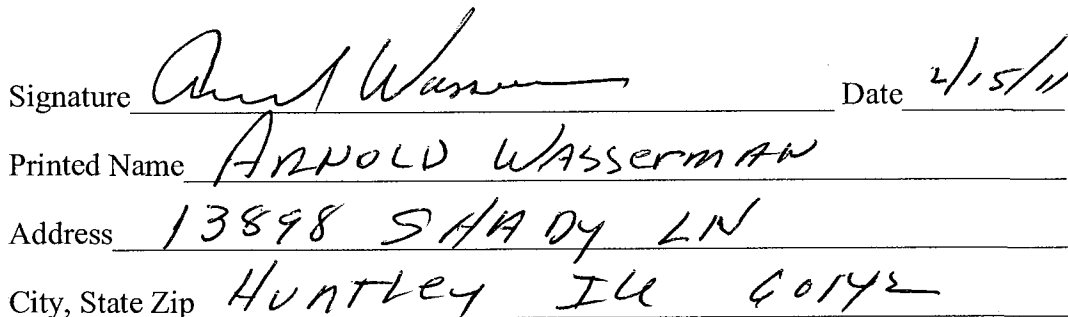 Signature Arnold Wasserman Date 2/15/11
Printed Name ARNOLD WASSERMAN
Address 13898 SHADY LN
City, State Zip HUNTLEY ILL 60142